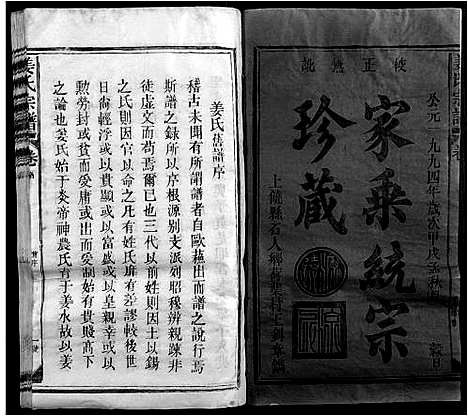 校正無訛
公元一九九四年歲次甲戌孟秋月 穀旦
家乘統宗
珍藏
上饒縣石人鄉
姜氏宗譜 卷
姜氏舊譜序
稽古未聞有所謂譜者自歐蘓出而譜之說行焉
斯譜之録所以序根源別支派列昭穆辨親疎非
徒虛文而苟焉爾已也三代以前姓則因生以錫
之氏則因官以命之凡有姓氏雇有差謬較後世
日尙輕浮或以貴顯或以富盛或以皇親幸或以
勲勞封或貧而受庸或達而受制始有貴賤髙下
之論也姜氏始于炎帝神農氏育于姜水故以姜
姜氏宗譜 卷
舊序